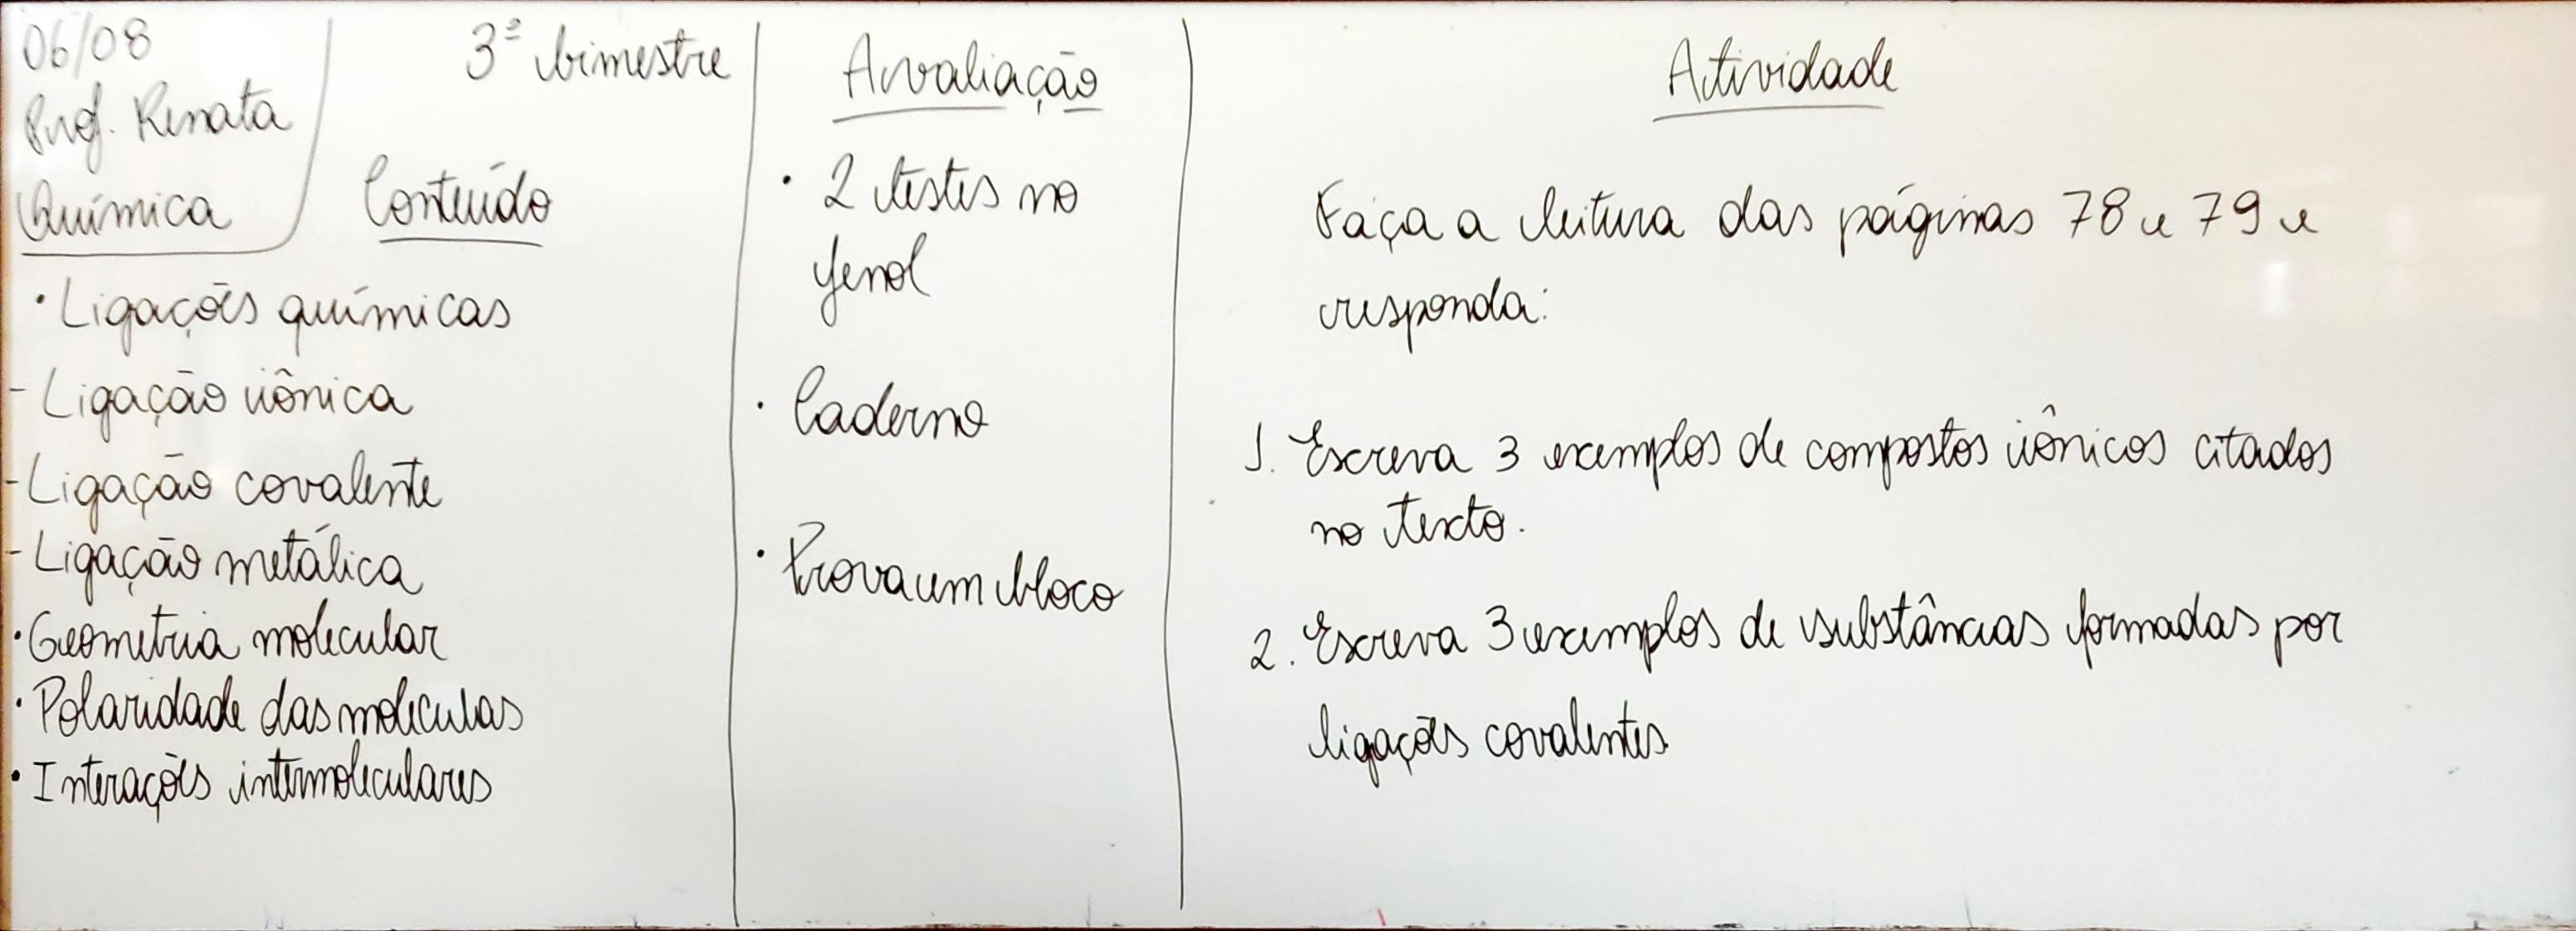 06/08
Prof. Renata
Química
3º bimestre
Conteúdo
• Ligações químicas
- Ligação iônica
- Ligação covalente
- Ligação metálica
• Geometria molecular
• Polaridade das moleculas
• Interações intermoleculares
Avaliação
• 2 testes no
fenol
• Caderno
• Prova em bloco
Atividade
Faça a leitura das páginas 78 e 79 e
responda:
1. Escreva 3 exemplos de compostos iônicos citados
no texto.
2. Escreva 3 exemplos de substâncias formadas por
ligações covalentes